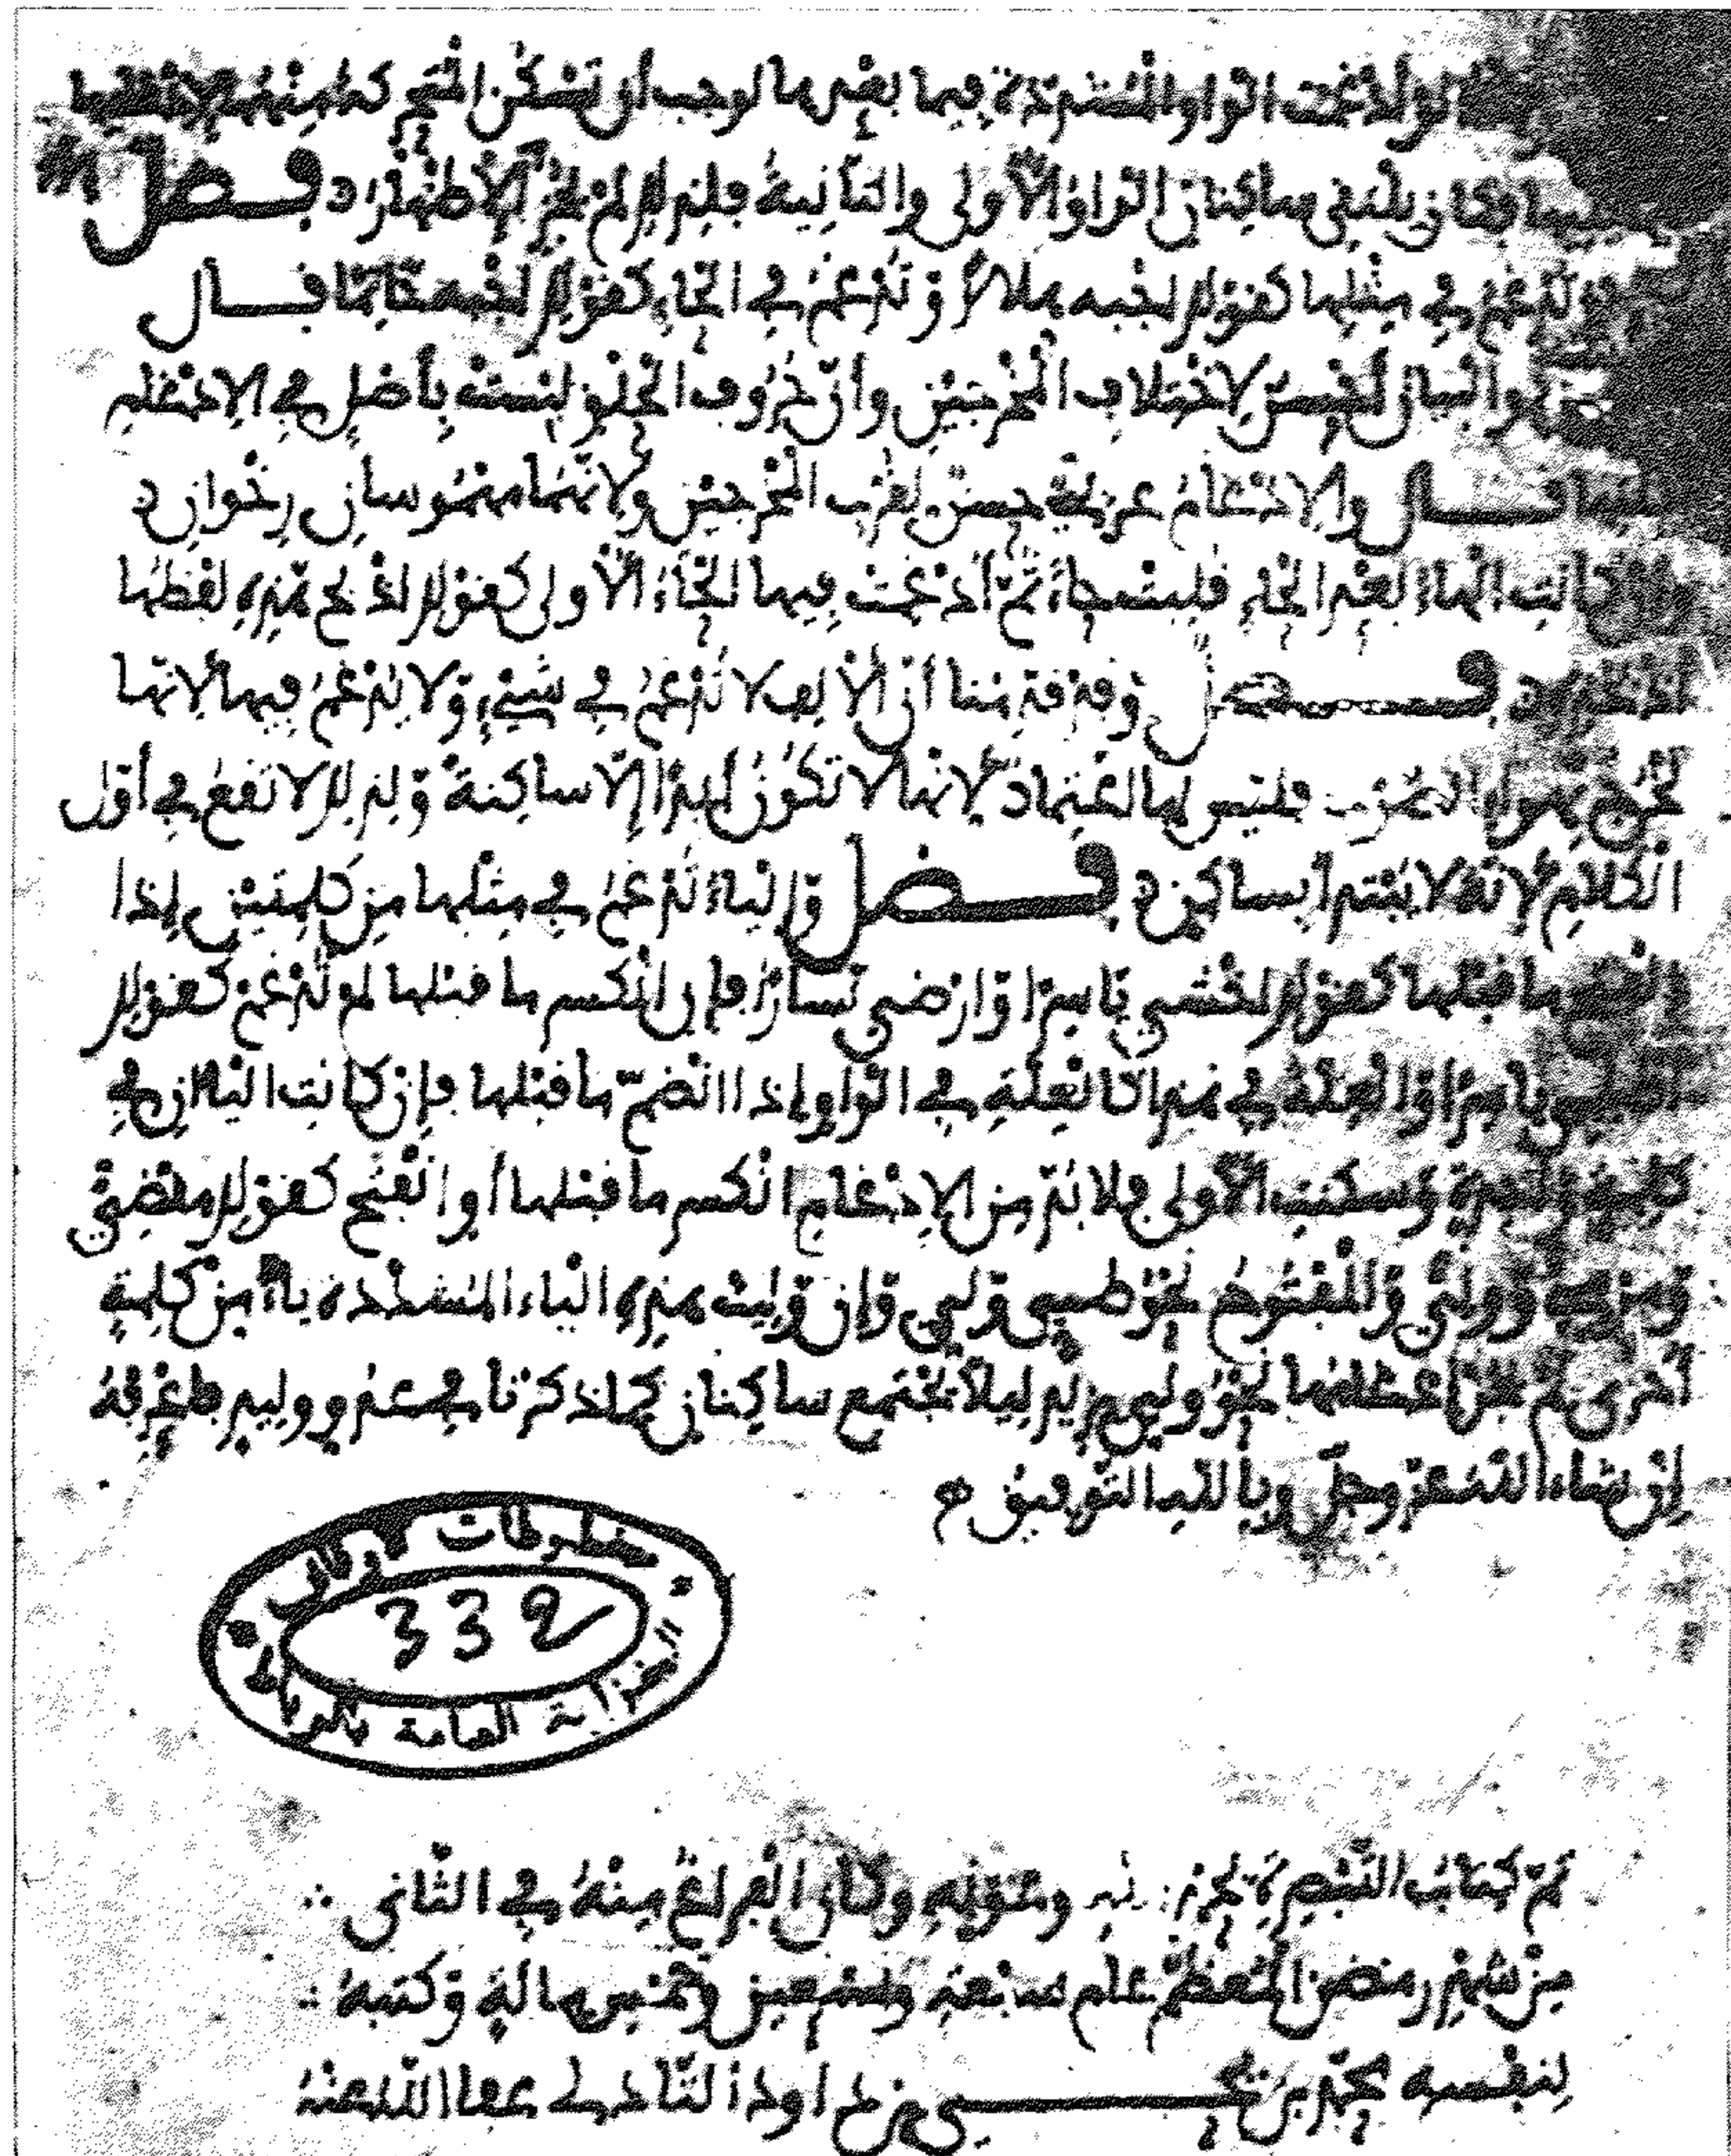 ولو أدغمت الواو المشددة فيما بعدها لوجب أن تسكن المتحركة منهما لإدغامها
فيما فكان يلتقي ساكنان الواو الأولى والثانية فلذلك لم يجز إلا الإظهار فصل
وتدغم في مثلها كقولك اجبه هلالا وتدغم في الحاء كقولك اجبه حاتما قال
والبيان أحسن لاختلاف المخرجين وأن حروف الحلق ليست بأصل في الإدغام
قال والإدغام عربي حسن لقرب المخرجين ولأنهما مهموسان رخوان
كانت الهاء بعد الحاء قلبت حاء ثم أدغمت فيها الحاء الأولى كقولك اذبح هذه لفظها
فصل وقد قدمنا أن الألف لا تدغم في شيء ولا يدغم فيها لأنها
تخرج بهواء الحرف فليس لها اعتماد لأنها لا تكون أبدا إلا ساكنة ولذلك لا تقع في أول
الكلام لأنه لا يبتدأ بساكن فصل والياء تدغم في مثلها من كلمتين إذا
انفتح ما قبلها كقولك اخشي ياسرا وارضي يسارا فإن انكسر ما قبلها لم تدغم كقولك
ياسرا والعلة في هذا كالعلة في الواو إذا انضم ما قبلها فإن كانت الياءان في
كلمة واحدة وسكنت الأولى فلا بد من الإدغام انكسر ما قبلها أو انفتح كقولك مقضي
وولي والمفتوح نحو طي ولي وإن وليت هذه الياء المشددة ياء من كلمة
أخرى لم يجز إدغامها نحو ولي يزيد ليلا يجتمع ساكنان كما ذكرنا في عدو وليد فاعرفه
إن شاء الله عز وجل وبالله التوفيق
مخطوطات الأوقاف
332
الخزانة العامة بالرباط
تم كتاب التبصرة بحمد الله وعونه وكان الفراغ منه في الثاني
من شهر رمضان المعظم عام سبعة وتسعين وخمس مائة وكتبه
لنفسه محمد بن يحيى بن داود التادلي عفا الله عنه